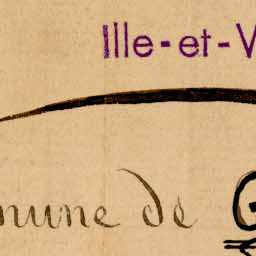 Ille-et-V
mune de